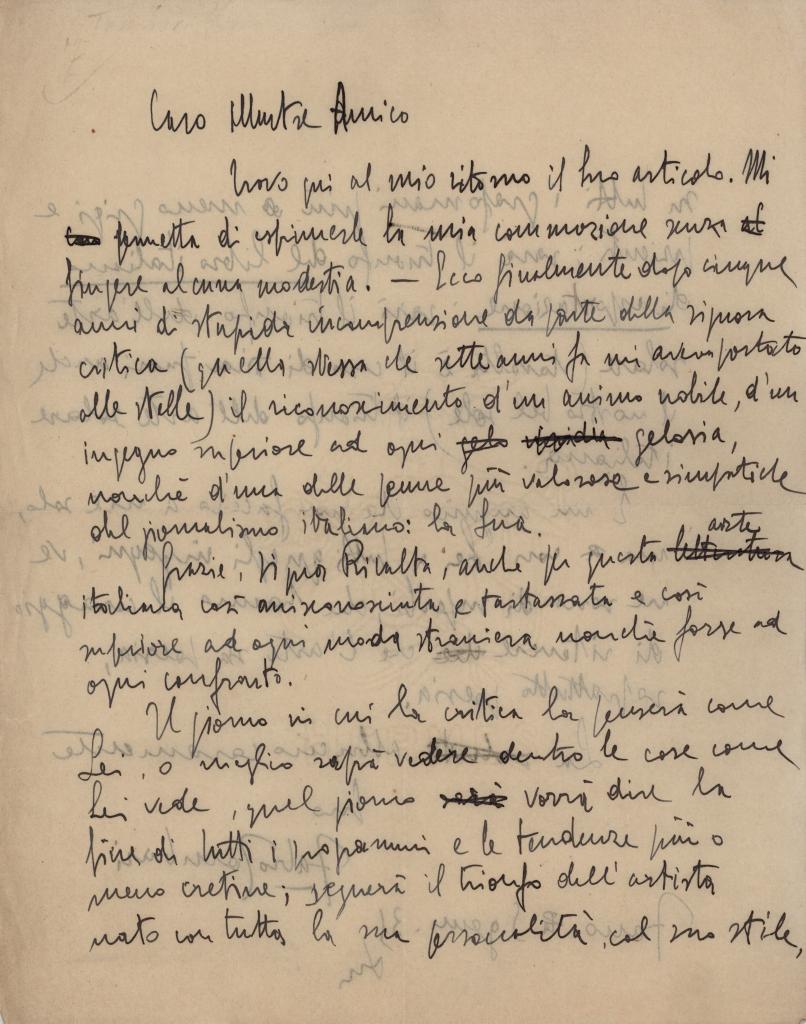 Caro Illustre Amico
Trovo qui al mio ritorno il Suo articolo. Mi
permetta di esprimerle la mia commozione senza
fingere alcuna modestia. — Ecco finalmente dopo cinque
anni di stupida incomprensione da parte della signora
critica (quella stessa che sette anni fa mi aveva portato
alle stelle) il riconoscimento d'un animo nobile, d'un
ingegno superiore ad ogni gelosia,
nonché d'una delle penne più valorose e simpatiche
del giornalismo italiano: la Sua.
Grazie, Signor Ricalta, anche per questa arte
italiana così misconosciuta e tartassata e così
superiore ad ogni moda straniera nonchè forse ad
ogni confronto.
Il giorno in cui la critica la penserà come
Lei, o meglio saprà vedere dentro le cose come
Lei vede, quel giorno vorrà dire la
fine di tutti i programmi e le tendenze più o
meno cretine; segnerà il trionfo dell'artista
nato con tutta la sua personalità, col suo stile,